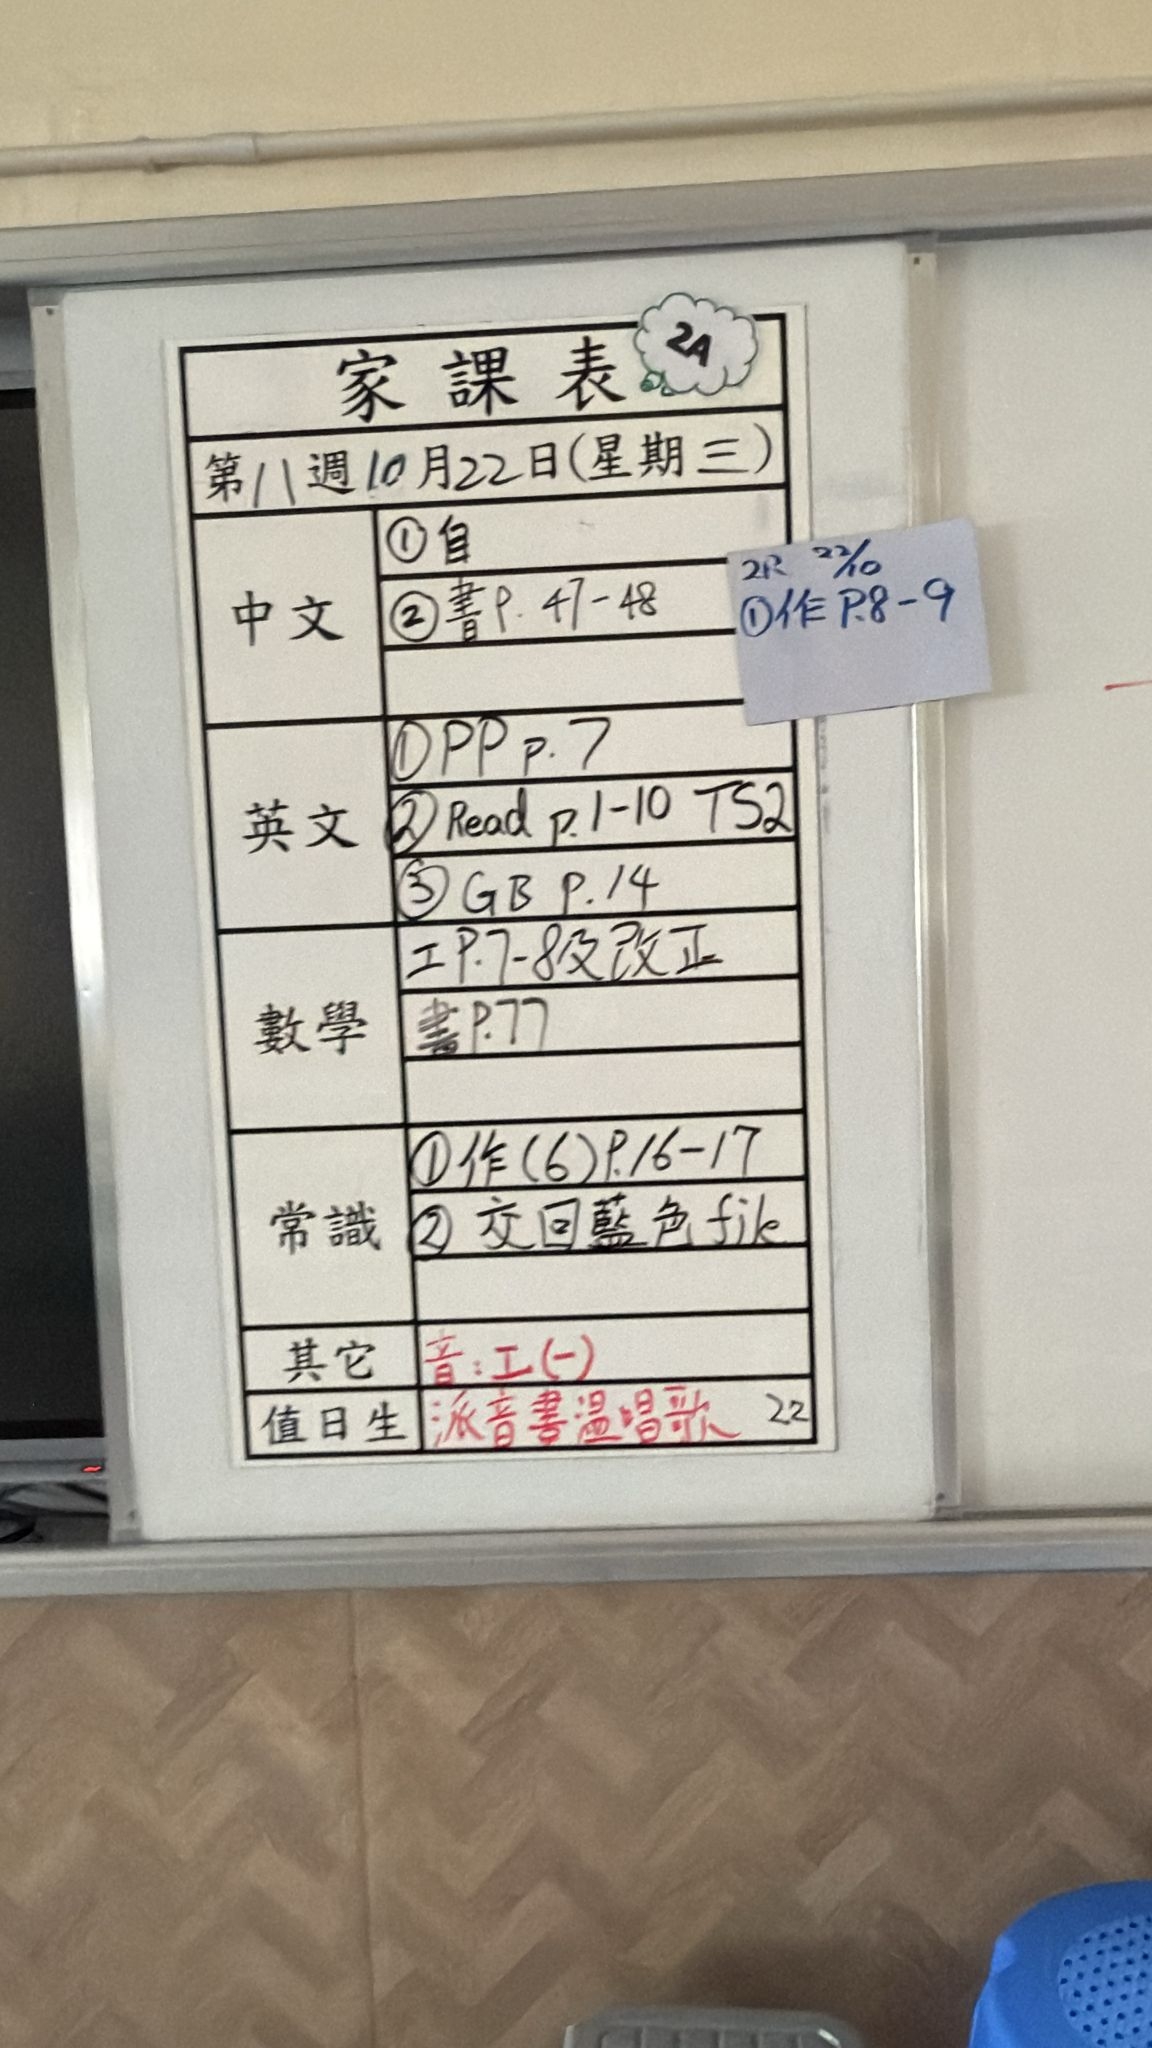 家課表
2A
第八週10月22日(星期三)
中文
①自
②書P.47-48
2R 22/10
①作P.8-9
英文
①PP p.7
②Read p.1-10 TS2
③GB P.14
數學
工P.7-8及改正
書P.77
常識
①作(6)P.16-17
②交回藍色file
其它
音:工(一)
值日生
派音書溫唱歌 22